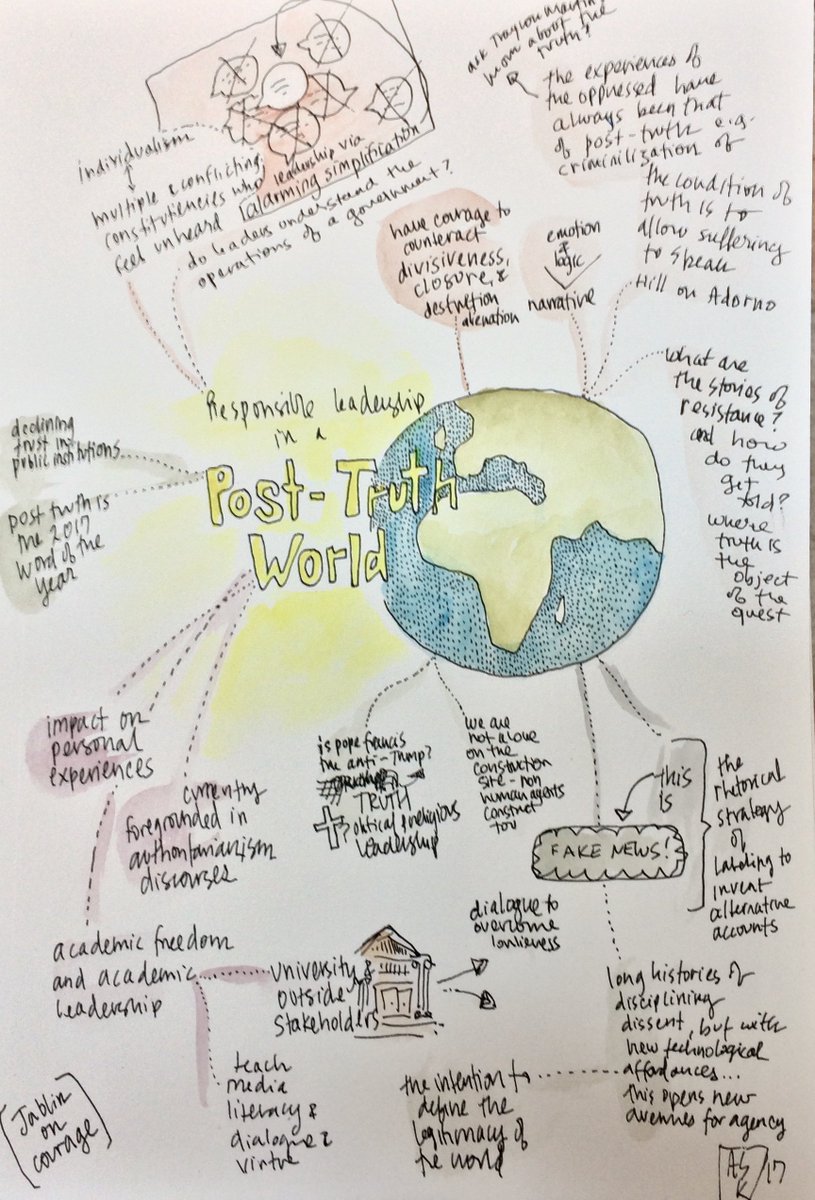 individualism
multiple & conflicting
constitutiencies who
feel unheard
leadership via
alarming simplification
do leaders understand the
operations of a government?
ask Trayvon Martin's
mom about the
truth?
the experiences of
the oppressed have
always been that
of post-truth e.g.
criminilization of
the condition of
truth is to
allow suffering
to speak
Hill on Adorno
have courage to
counteract
divisiveness,
closure, &
destruction
alienation
emotion
&
logic
narrative
what are
the stories of
resistance?
and how
do they
get
told?
where
truth is
the
object
of the
quest
Responsible leadership
in a
Post-Truth
World
declining
trust in
public institutions
post truth is
the 2017
word of the
year
impact on
personal
experiences
currently
foregrounded in
authoritarianism
discourses
is pope francis
the anti-Trump?
TRUTH
political & religious
leadership
we are
not alone
on the
construction
site - non
human agents
construct
too
this
is
FAKE NEWS!
the
rhetorical
strategy
of
labeling to
invent
alternative
accounts
academic freedom
and academic
leadership
university &
outside
stakeholders
dialogue to
overcome
lonlieness
long histories of
disciplining
dissent, but with
new technological
affordances...
this opens new
avenues for agency
teach
media
literacy &
dialogue &
virtue
the intention to
define the
legitimacy of
the world
[Jablin
on
courage]
/17